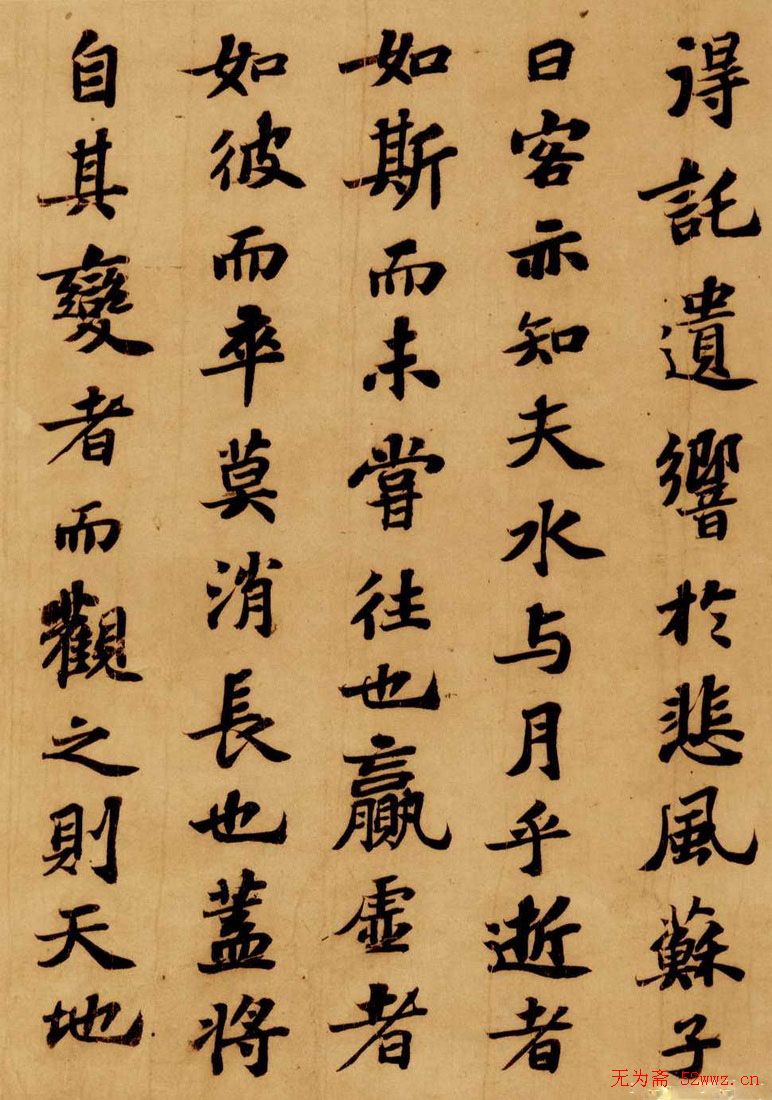 得託遺響於悲風蘇子
曰客亦知夫水与月乎逝者
如斯而未甞往也贏虛者
如彼而卒莫消長也蓋將
自其變者而觀之則天地
无为斋 52wwz.cn